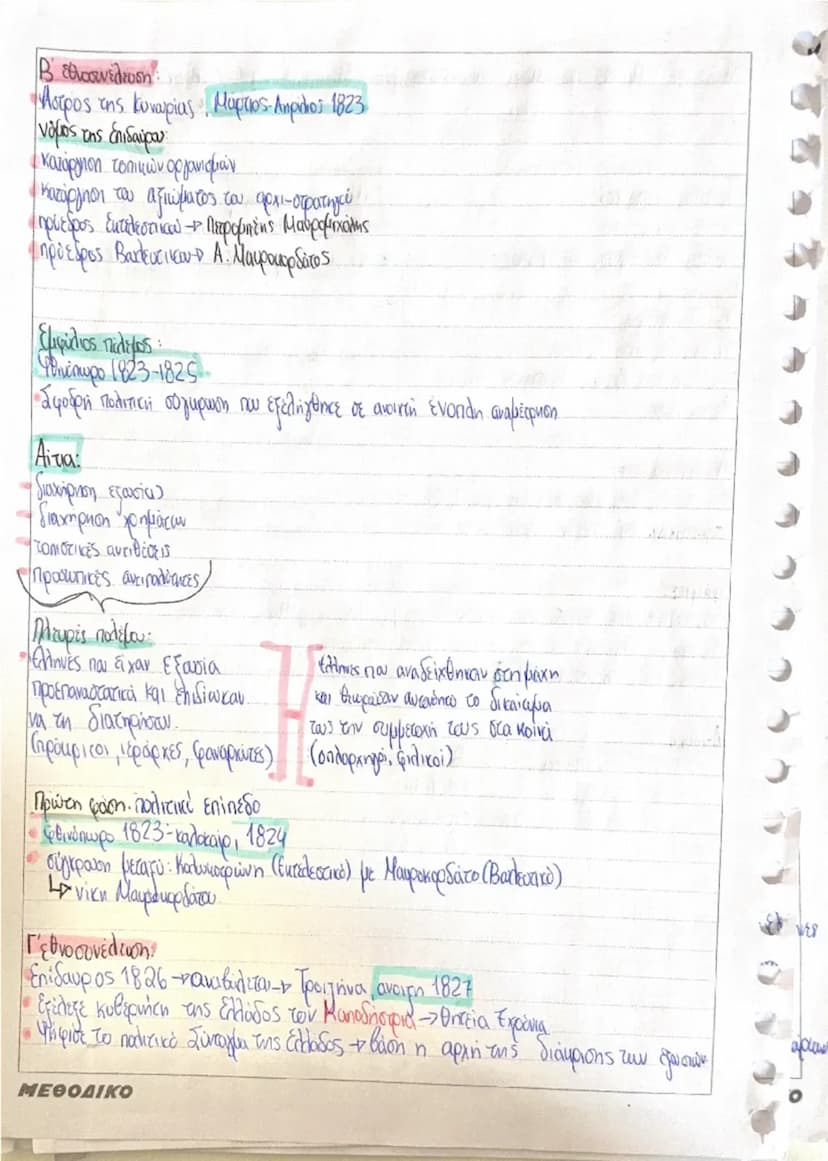 Β' εθνοσυνέλευση:
Άστρος της Κυνουρίας, Μάρτιος-Απρίλιος 1823
Νόμος της Επιδαύρου:
κατάργηση τοπικών οργανισμών
κατάργηση του αξιώματος του αρχι-στρατηγού
πρόεδρος Εκτελεστικού → Πετρόμπεης Μαυρομιχάλης
πρόεδρος Βουλευτικού → Α. Μαυροκορδάτος
Εμφύλιος πόλεμος:
Φθινόπωρο 1823-1825
Σφοδρή πολιτική σύγκρουση που εξελίχθηκε σε ανοιχτή ένοπλη αναμέτρηση
Αίτια:
διαχείριση εξουσίας
διαχείρηση χρημάτων
τοπιστικές αντιθέσεις
προσωπικές αντιπαλότητες
Πλευρές πολέμου:
Έλληνες που είχαν εξουσία
προεπαναστατικά και επιδίωκαν
να τη διατηρήσουν
(πρόκριτοι, ιεράρχες, φαναριώτες)
Έλληνες που αναδείχθηκαν στη μάχη
και θεωρούσαν αυτονόητο το δικαίωμα
τους την συμμετοχή τους στα κοινά
(οπλαρχηγοί, φιλικοί)
Πρώτη φάση: πολιτικό επίπεδο
φθινόπωρο 1823-καλοκαίρι 1824
σύγκρουση μεταξύ: Κολοκοτρώνη (Εκτελεστικό) με Μαυροκορδάτο (Βουλευτικό)
↳ νίκη Μαυροκορδάτου
Γ' εθνοσυνέλευση:
Επίδαυρος 1826 → αναβάλλεται → Τροιζήνα, άνοιξη 1827
Εξέλεξε κυβερνήτη της Ελλάδος τον Καποδήστρια → θητεία 7 χρόνια
Ψήφισε το πολιτικό Σύνταγμα της Ελλάδος → βάση η αρχή της διάκρισης των εξουσιών
ΜΕΘΟΔΙΚΟ